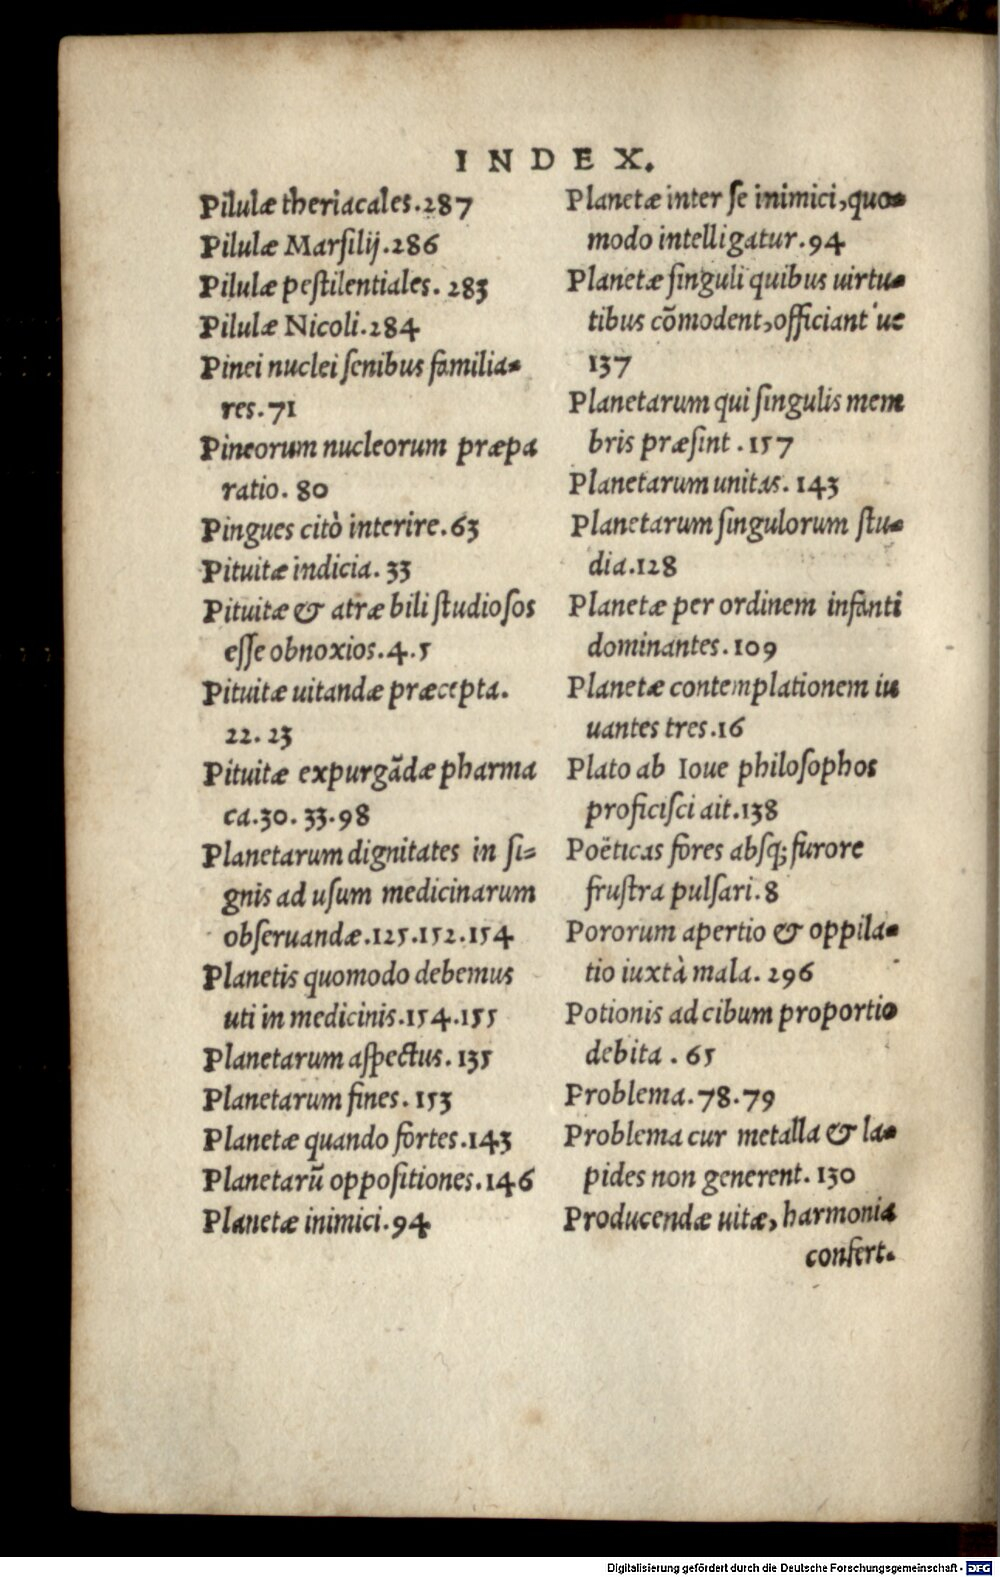 INDEX.
Pilulæ theriacales.287
Pilulæ Marſilij.286
Pilulæ peſtilentiales. 283
Pilulæ Nicoli.284
Pinei nuclei ſenibus familia-
res. 71
Pineorum nucleorum præpa
ratio. 80
Pingues citò interire.63
Pituitæ indicia. 33
Pituitæ & atræ bili ſtudioſos
eſſe obnoxios.4.5
Pituitæ uitandæ præcepta.
22. 23
Pituitæ expurgãdæ pharma
ca.30. 33.98
Planetarum dignitates in ſi-
gnis ad uſum medicinarum
obſeruandæ.125.152.154
Planetis quomodo debemus
uti in medicinis.154.155
Planetarum aſpectus. 135
Planetarum fines. 153
Planetæ quando fortes.143
Planetarũ oppoſitiones.146
Planetæ inimici.94
Planetæ inter ſe inimici,quo-
modo intelligatur.94
Planetæ ſinguli quibus uirtu-
tibus cõmodent,officiant ue
137
Planetarum qui ſingulis mem
bris præſint . 157
Planetarum unitas. 143
Planetarum ſingulorum ſtu-
dia.128
Planetæ per ordinem infanti
dominantes. 109
Planetæ contemplationem iu
uantes tres.16
Plato ab Ioue philoſophos
proficiſci ait.138
Poëticas fores abſq; furore
fruſtra pulſari. 8
Pororum apertio & oppila-
tio iuxtà mala. 296
Potionis ad cibum proportio
debita . 65
Problema. 78.79
Problema cur metalla & la-
pides non generent. 130
Producendæ uitæ, harmonia
confert.
Digitalisierung gefördert durch die Deutsche Forschungsgemeinschaft - DFG